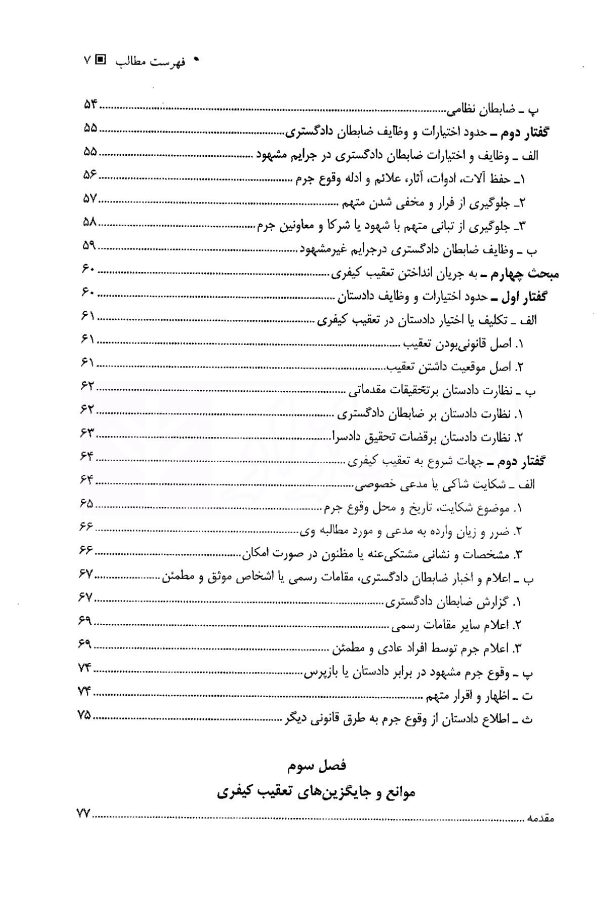 فهرست مطالب ▣ ۷
پ ـ ضابطان نظامی ..... ۵۴
گفتار دوم ـ حدود اختیارات و وظایف ضابطان دادگستری ..... ۵۵
الف ـ وظایف و اختیارات ضابطان دادگستری در جرایم مشهود ..... ۵۵
۱ـ حفظ آلات، ادوات، آثار، علائم و ادله وقوع جرم ..... ۵۶
۲ـ جلوگیری از فرار و مخفی شدن متهم ..... ۵۷
۳ـ جلوگیری از تبانی متهم با شهود یا شرکا و معاونین جرم ..... ۵۸
ب ـ وظایف ضابطان دادگستری درجرایم غیرمشهود ..... ۵۹
مبحث چهارم ـ به جریان انداختن تعقیب کیفری ..... ۶۰
گفتار اول ـ حدود اختیارات و وظایف دادستان ..... ۶۰
الف ـ تکلیف یا اختیار دادستان در تعقیب کیفری ..... ۶۱
۱. اصل قانونی‌بودن تعقیب ..... ۶۱
۲. اصل موقعیت داشتن تعقیب ..... ۶۱
ب ـ نظارت دادستان برتحقیقات مقدماتی ..... ۶۲
۱. نظارت دادستان بر ضابطان دادگستری ..... ۶۲
۲. نظارت دادستان برقضات تحقیق دادسرا ..... ۶۳
گفتار دوم ـ جهات شروع به تعقیب کیفری ..... ۶۴
الف ـ شکایت شاکی یا مدعی خصوصی ..... ۶۴
۱. موضوع شکایت، تاریخ و محل وقوع جرم ..... ۶۵
۲. ضرر و زیان وارده به مدعی و مورد مطالبه وی ..... ۶۶
۳. مشخصات و نشانی مشتکی‌عنه یا مظنون در صورت امکان ..... ۶۶
ب ـ اعلام و اخبار ضابطان دادگستری، مقامات رسمی یا اشخاص موثق و مطمئن ..... ۶۷
۱. گزارش ضابطان دادگستری ..... ۶۷
۲. اعلام سایر مقامات رسمی ..... ۶۹
۳. اعلام جرم توسط افراد عادی و مطمئن ..... ۶۹
پ ـ وقوع جرم مشهود در برابر دادستان یا بازپرس ..... ۷۴
ت ـ اظهار و اقرار متهم ..... ۷۴
ث ـ اطلاع دادستان از وقوع جرم به طرق قانونی دیگر ..... ۷۵
فصل سوم
موانع و جایگزین‌های تعقیب کیفری
مقدمه ..... ۷۷